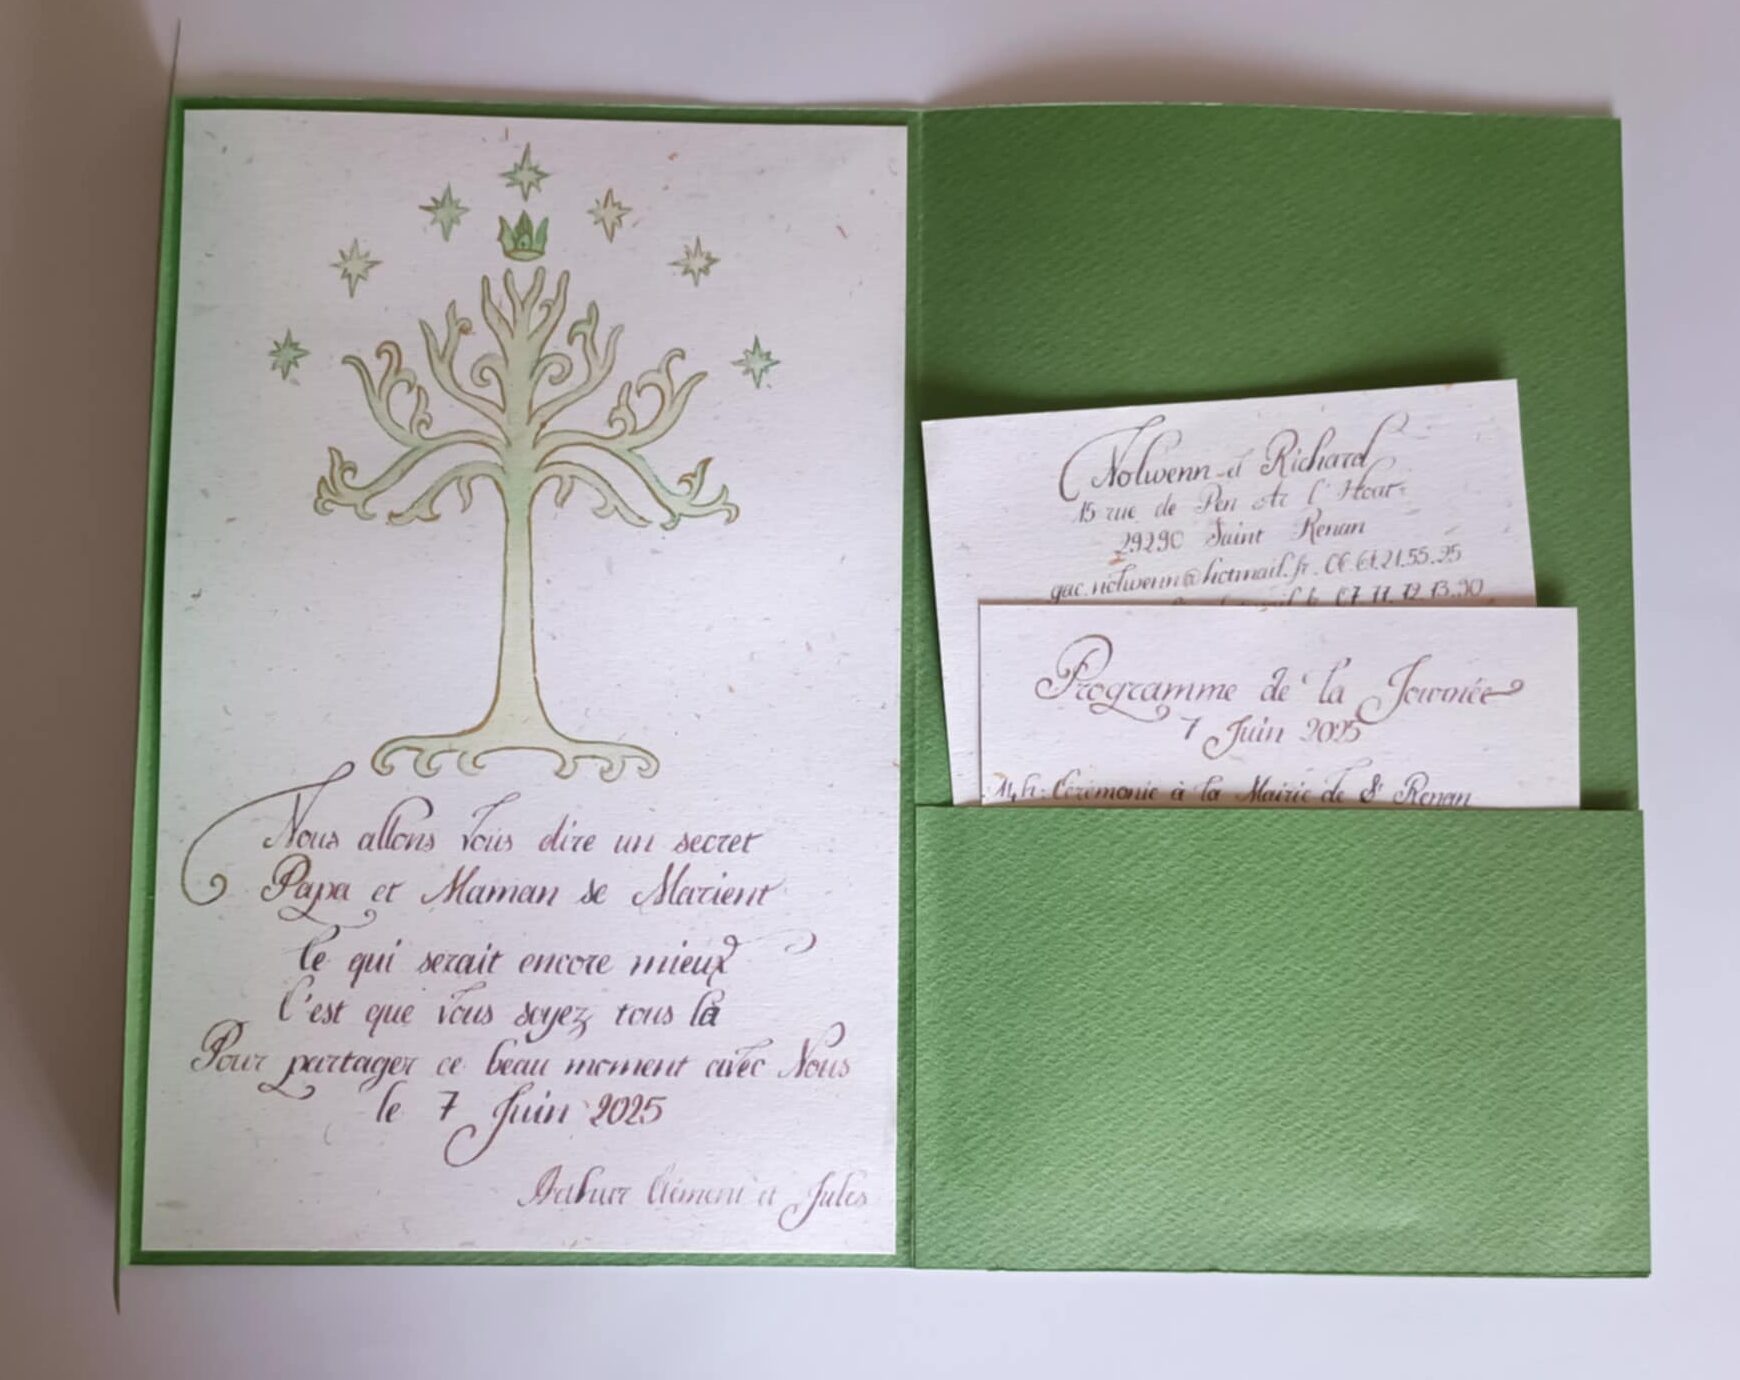 Nous allons Vous dire un secret
Papa et Maman se Marient
Ce qui serait encore mieux
C'est que Vous soyez tous là
Pour partager ce beau moment avec Nous
le 7 Juin 2025
Arthur Clément et Jules
Nolwenn et Richard
15 rue de Pen Ar l'Hoat
29290 Saint Renan
gac.nolwenn@hotmail.fr. 06.61.21.55.95
07.71.72.13.90
Programme de la Journée
7 Juin 2025
14h: Cérémonie à la Mairie de St Renan